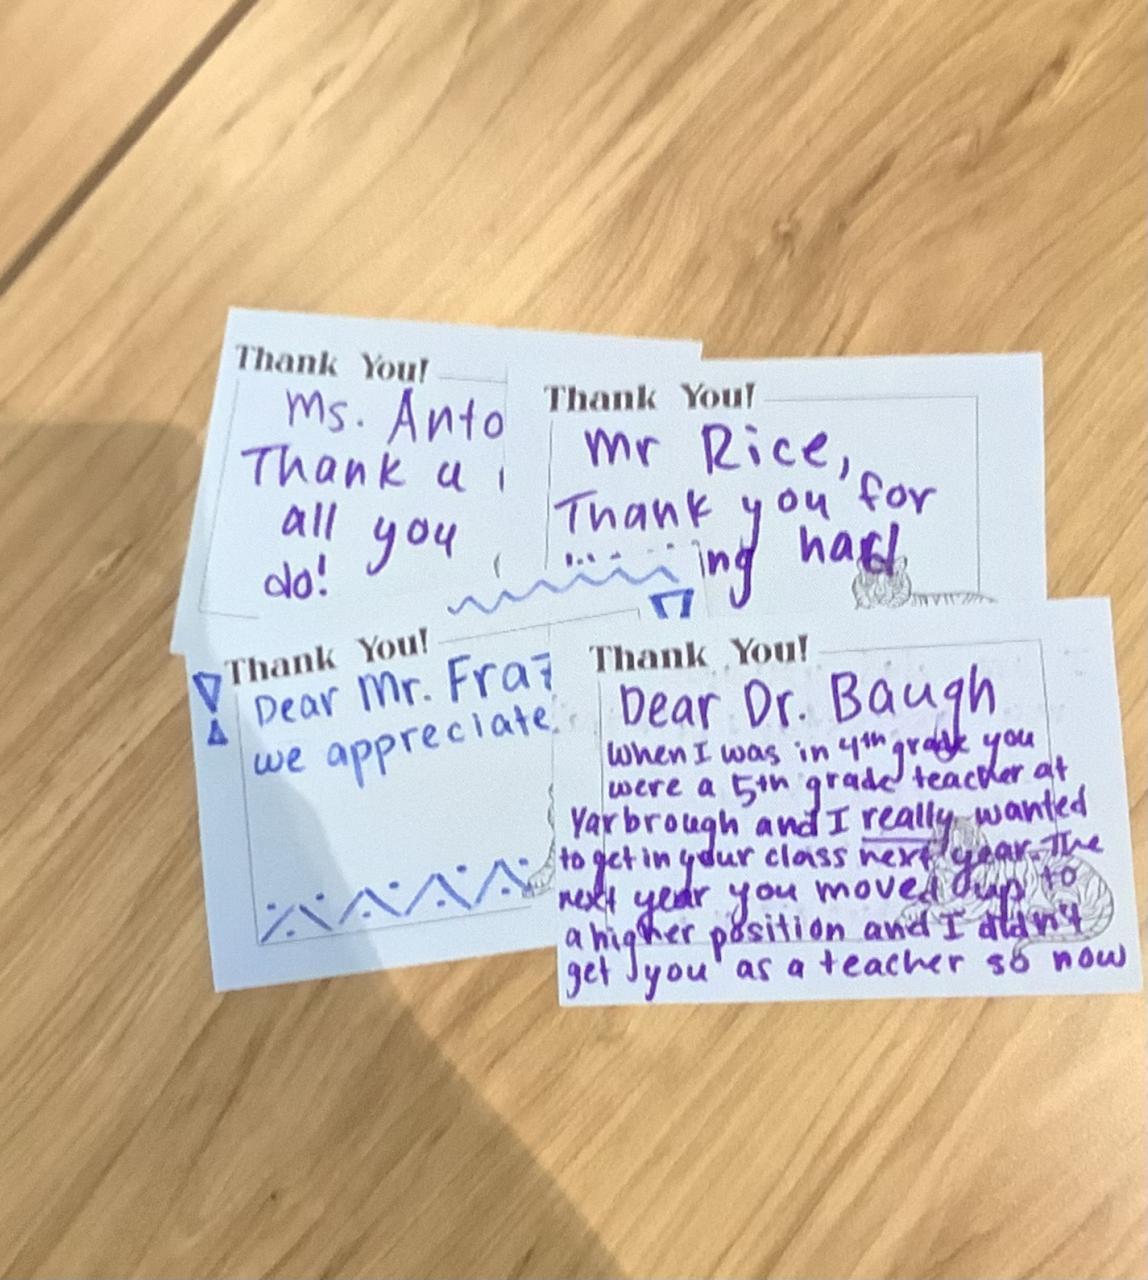 Thank You!
Ms. Anto
Thank u
all you
do!
Thank You!
Mr Rice,
Thank you for
hard
Thank You!
Dear Mr.
we appreciate
Thank You!
Dear Dr. Baugh
When I was in 4th grade you
were a 5th grade teacher at
Yarbrough and I really wanted
to get in your class next year. The
next year you moved up to
a higher position and I didn't
get you as a teacher so now